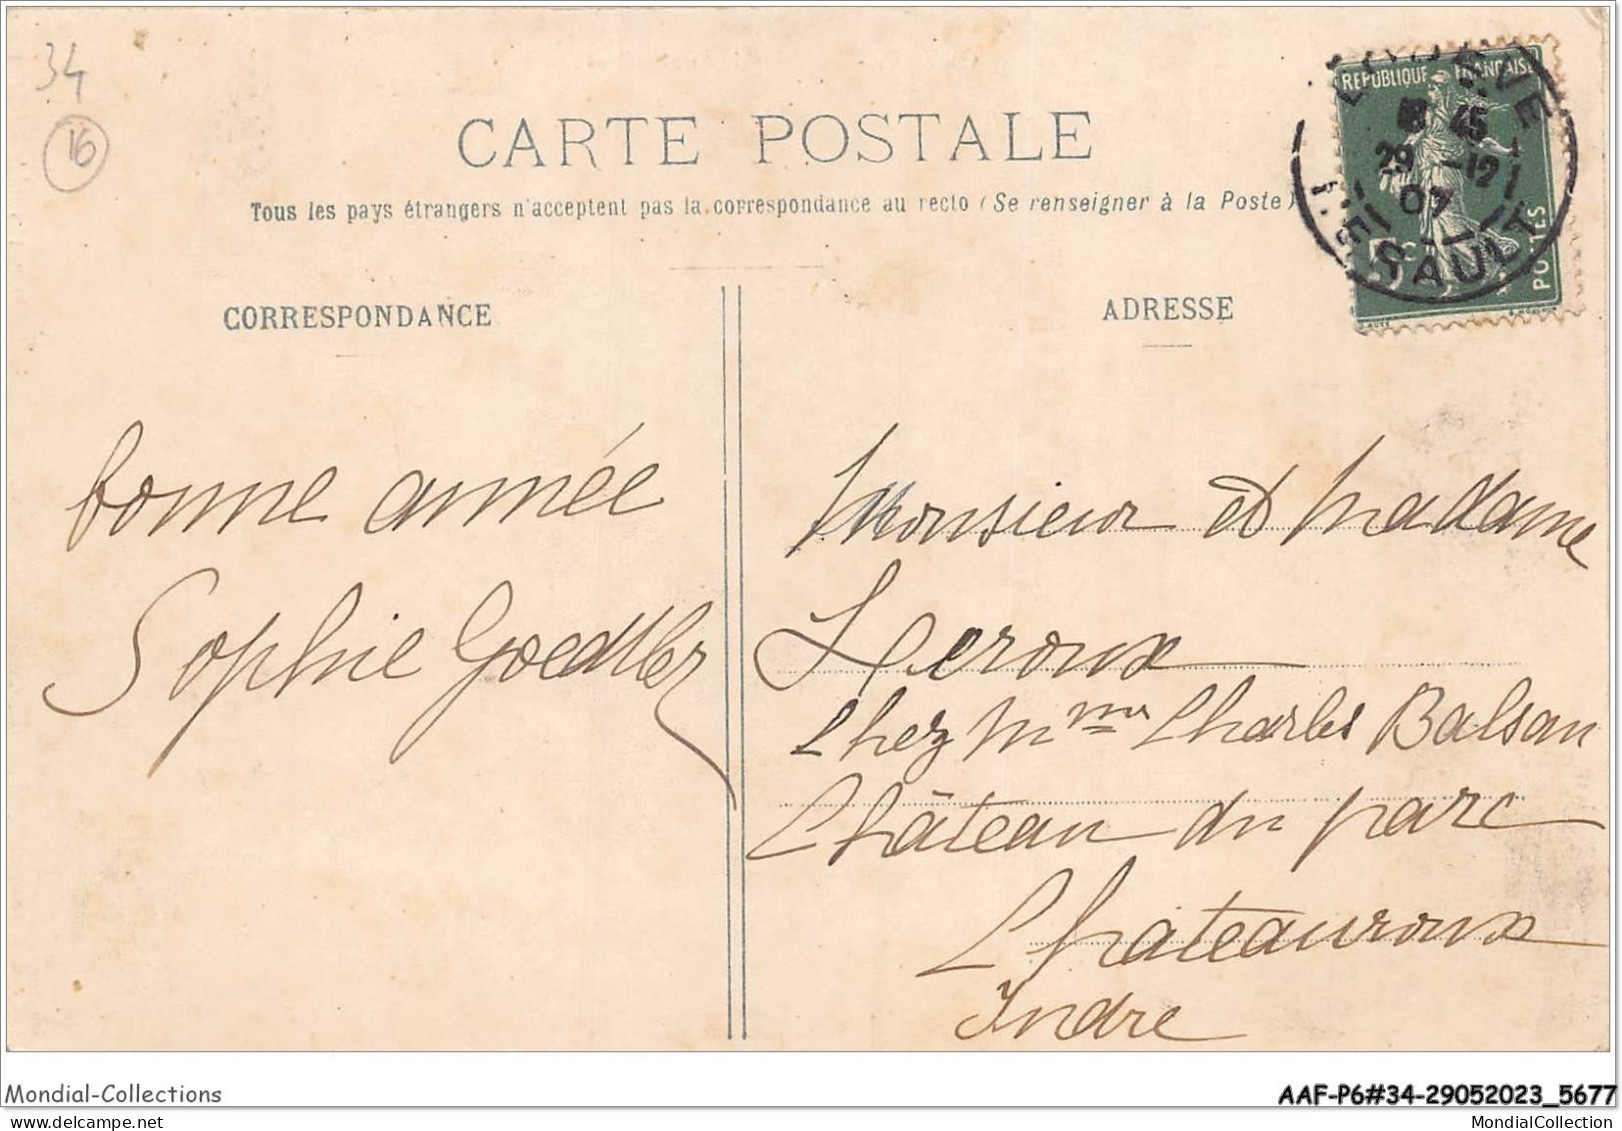 34
16
CARTE POSTALE
Tous les pays étrangers n'acceptent pas la correspondance au recto (Se renseigner à la Poste)
REPUBLIQUE FRANÇAISE
LODEVE
45
29 -12
07
HERAULT
5c
POSTES
CORRESPONDANCE
ADRESSE
bonne année
Sophie
Monsieur et Madame
Leroux
Chez Mme Charles Balsan
Château du parc
Chateauroux
Indre
Mondial-Collections
AAF-P6#34-29052023_5677
MondialCollection